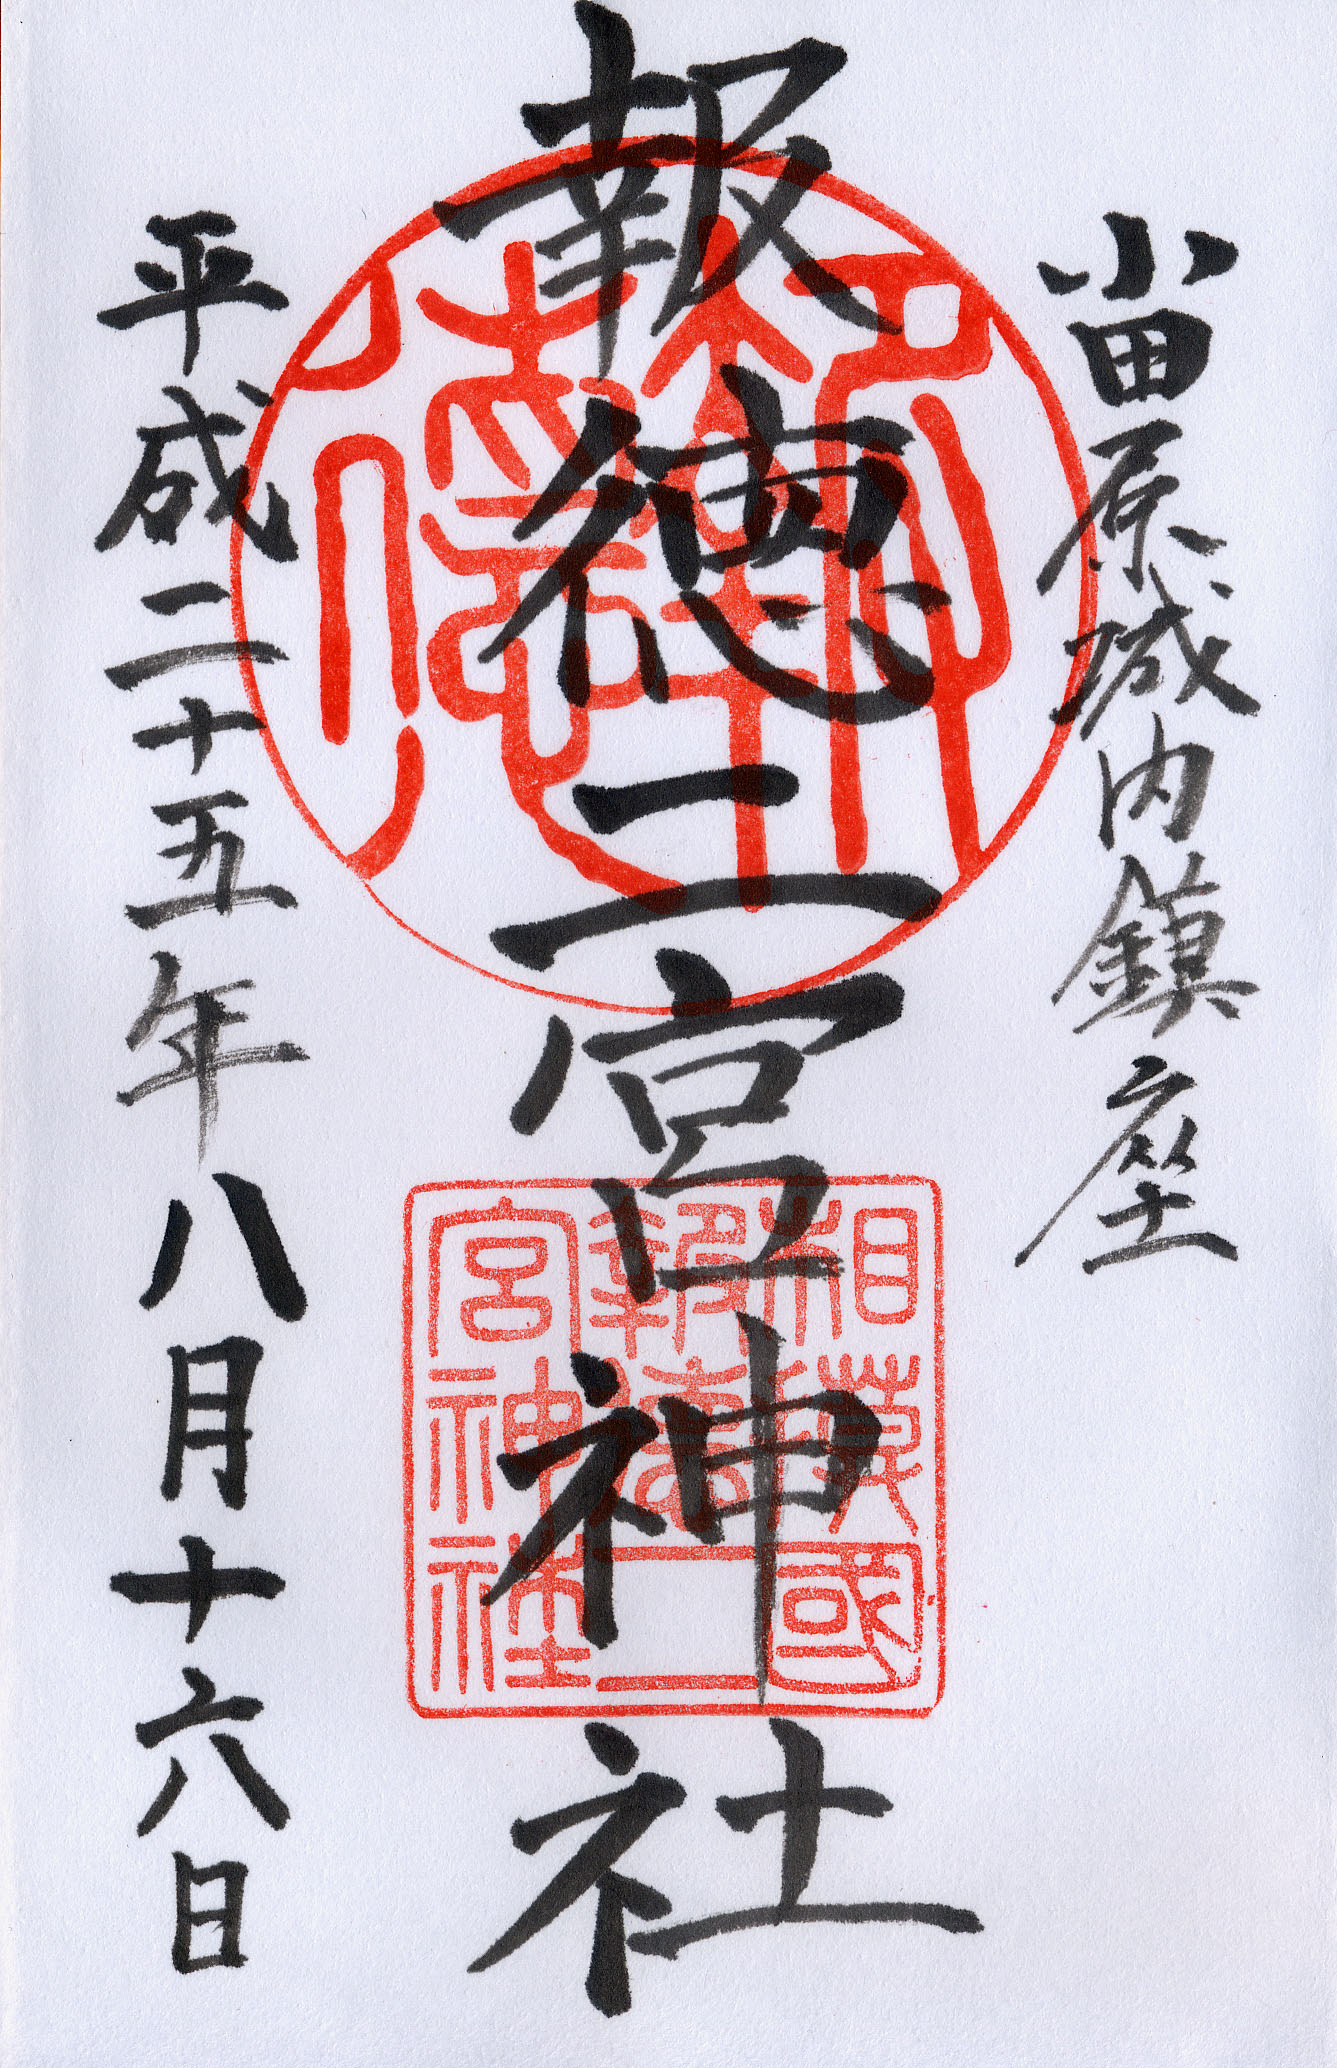 小田原城内鎮座
報徳二宮神社
相模國
報徳二
宮神社
報徳
平成二十五年八月十六日